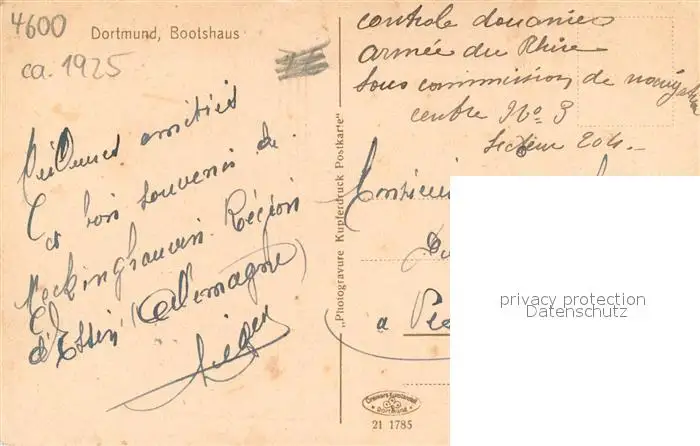 4600
Dortmund, Bootshaus
ca. 1925
Meilleures amitiés
Et bon souvenir de
Reckinghausen. Région
d'Essen (Allemagne)
"Photogravure Kupferdruck Postkarte"
controle douanier
armée du Rhin
Sous commission de
centre No 3
Secteur 204.
Monsieur
a
privacy protection
Datenschutz
Dortmund
21 1785